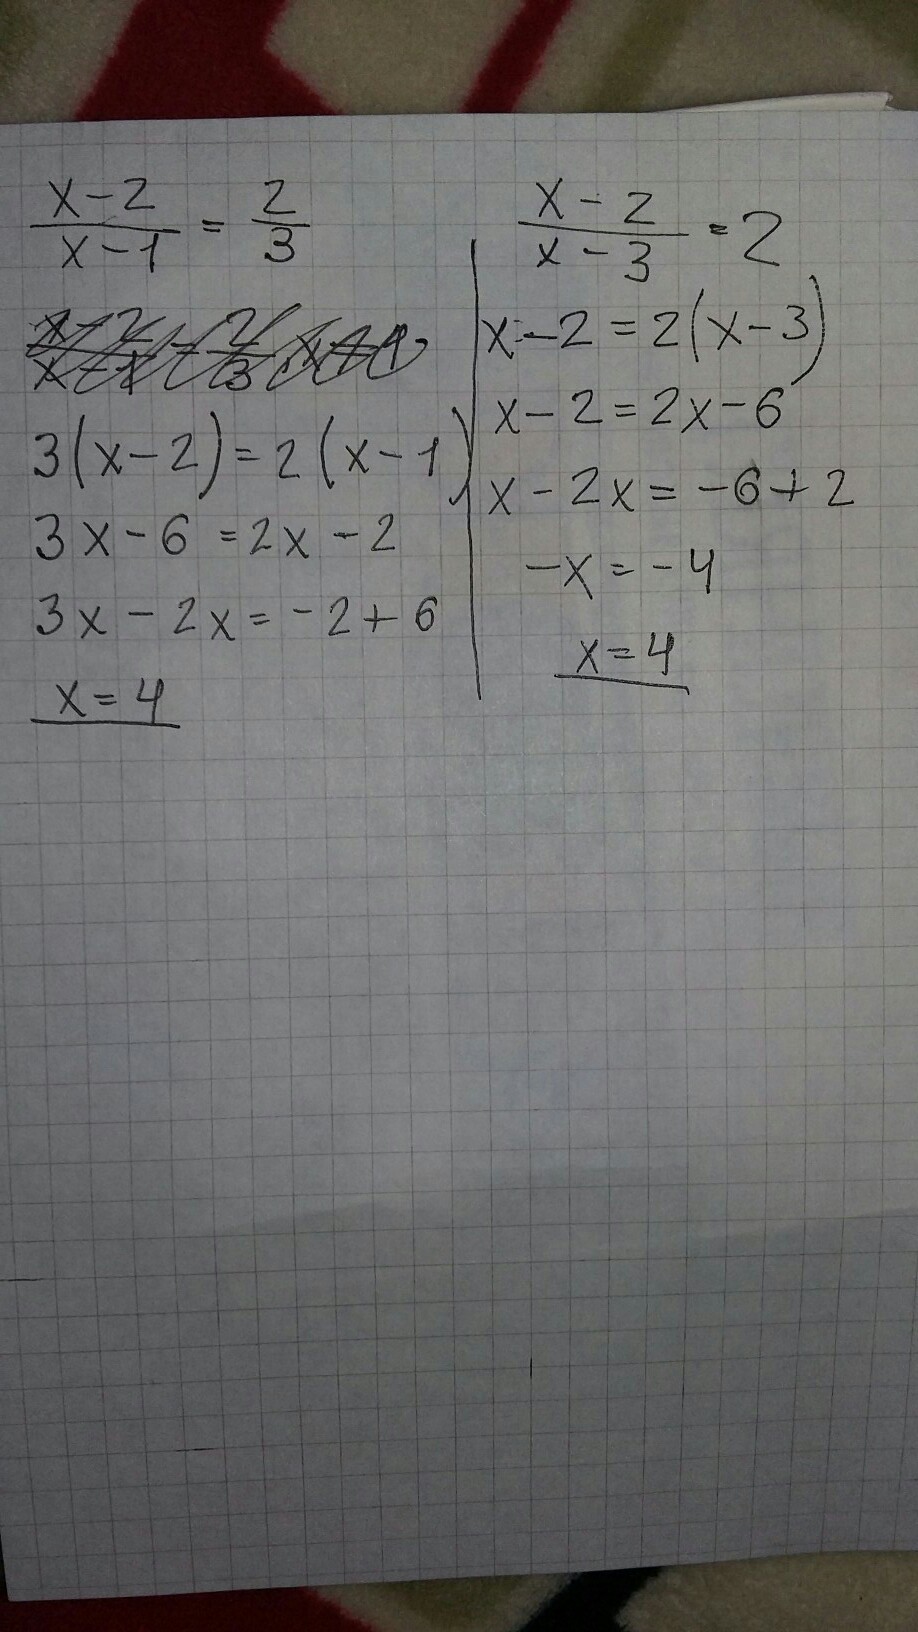 x-2/x-1 = 2/3
3(x-2)=2(x-1)
3x-6=2x-2
3x-2x=-2+6
x=4
x-2/x-3 = 2
x-2=2(x-3)
x-2=2x-6
x-2x=-6+2
-x=-4
x=4